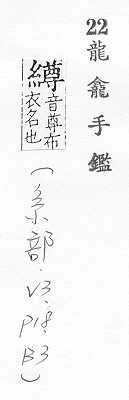 22龍龕手鑑
繜音尊布
衣名也
(糸部.V3.P18.B3)